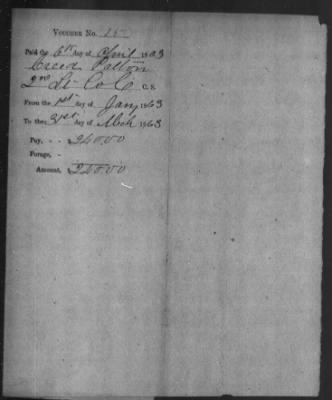 VOUCHER No. 15
Paid the 6th day of April 1863
Creed Patton
2nd Lt Co C C. S.
From the 1st day of Jany 1863
To the 31st day of Mch 1863
Pay, - - $ 240.00
Forage, -
Amount, $ 240.00